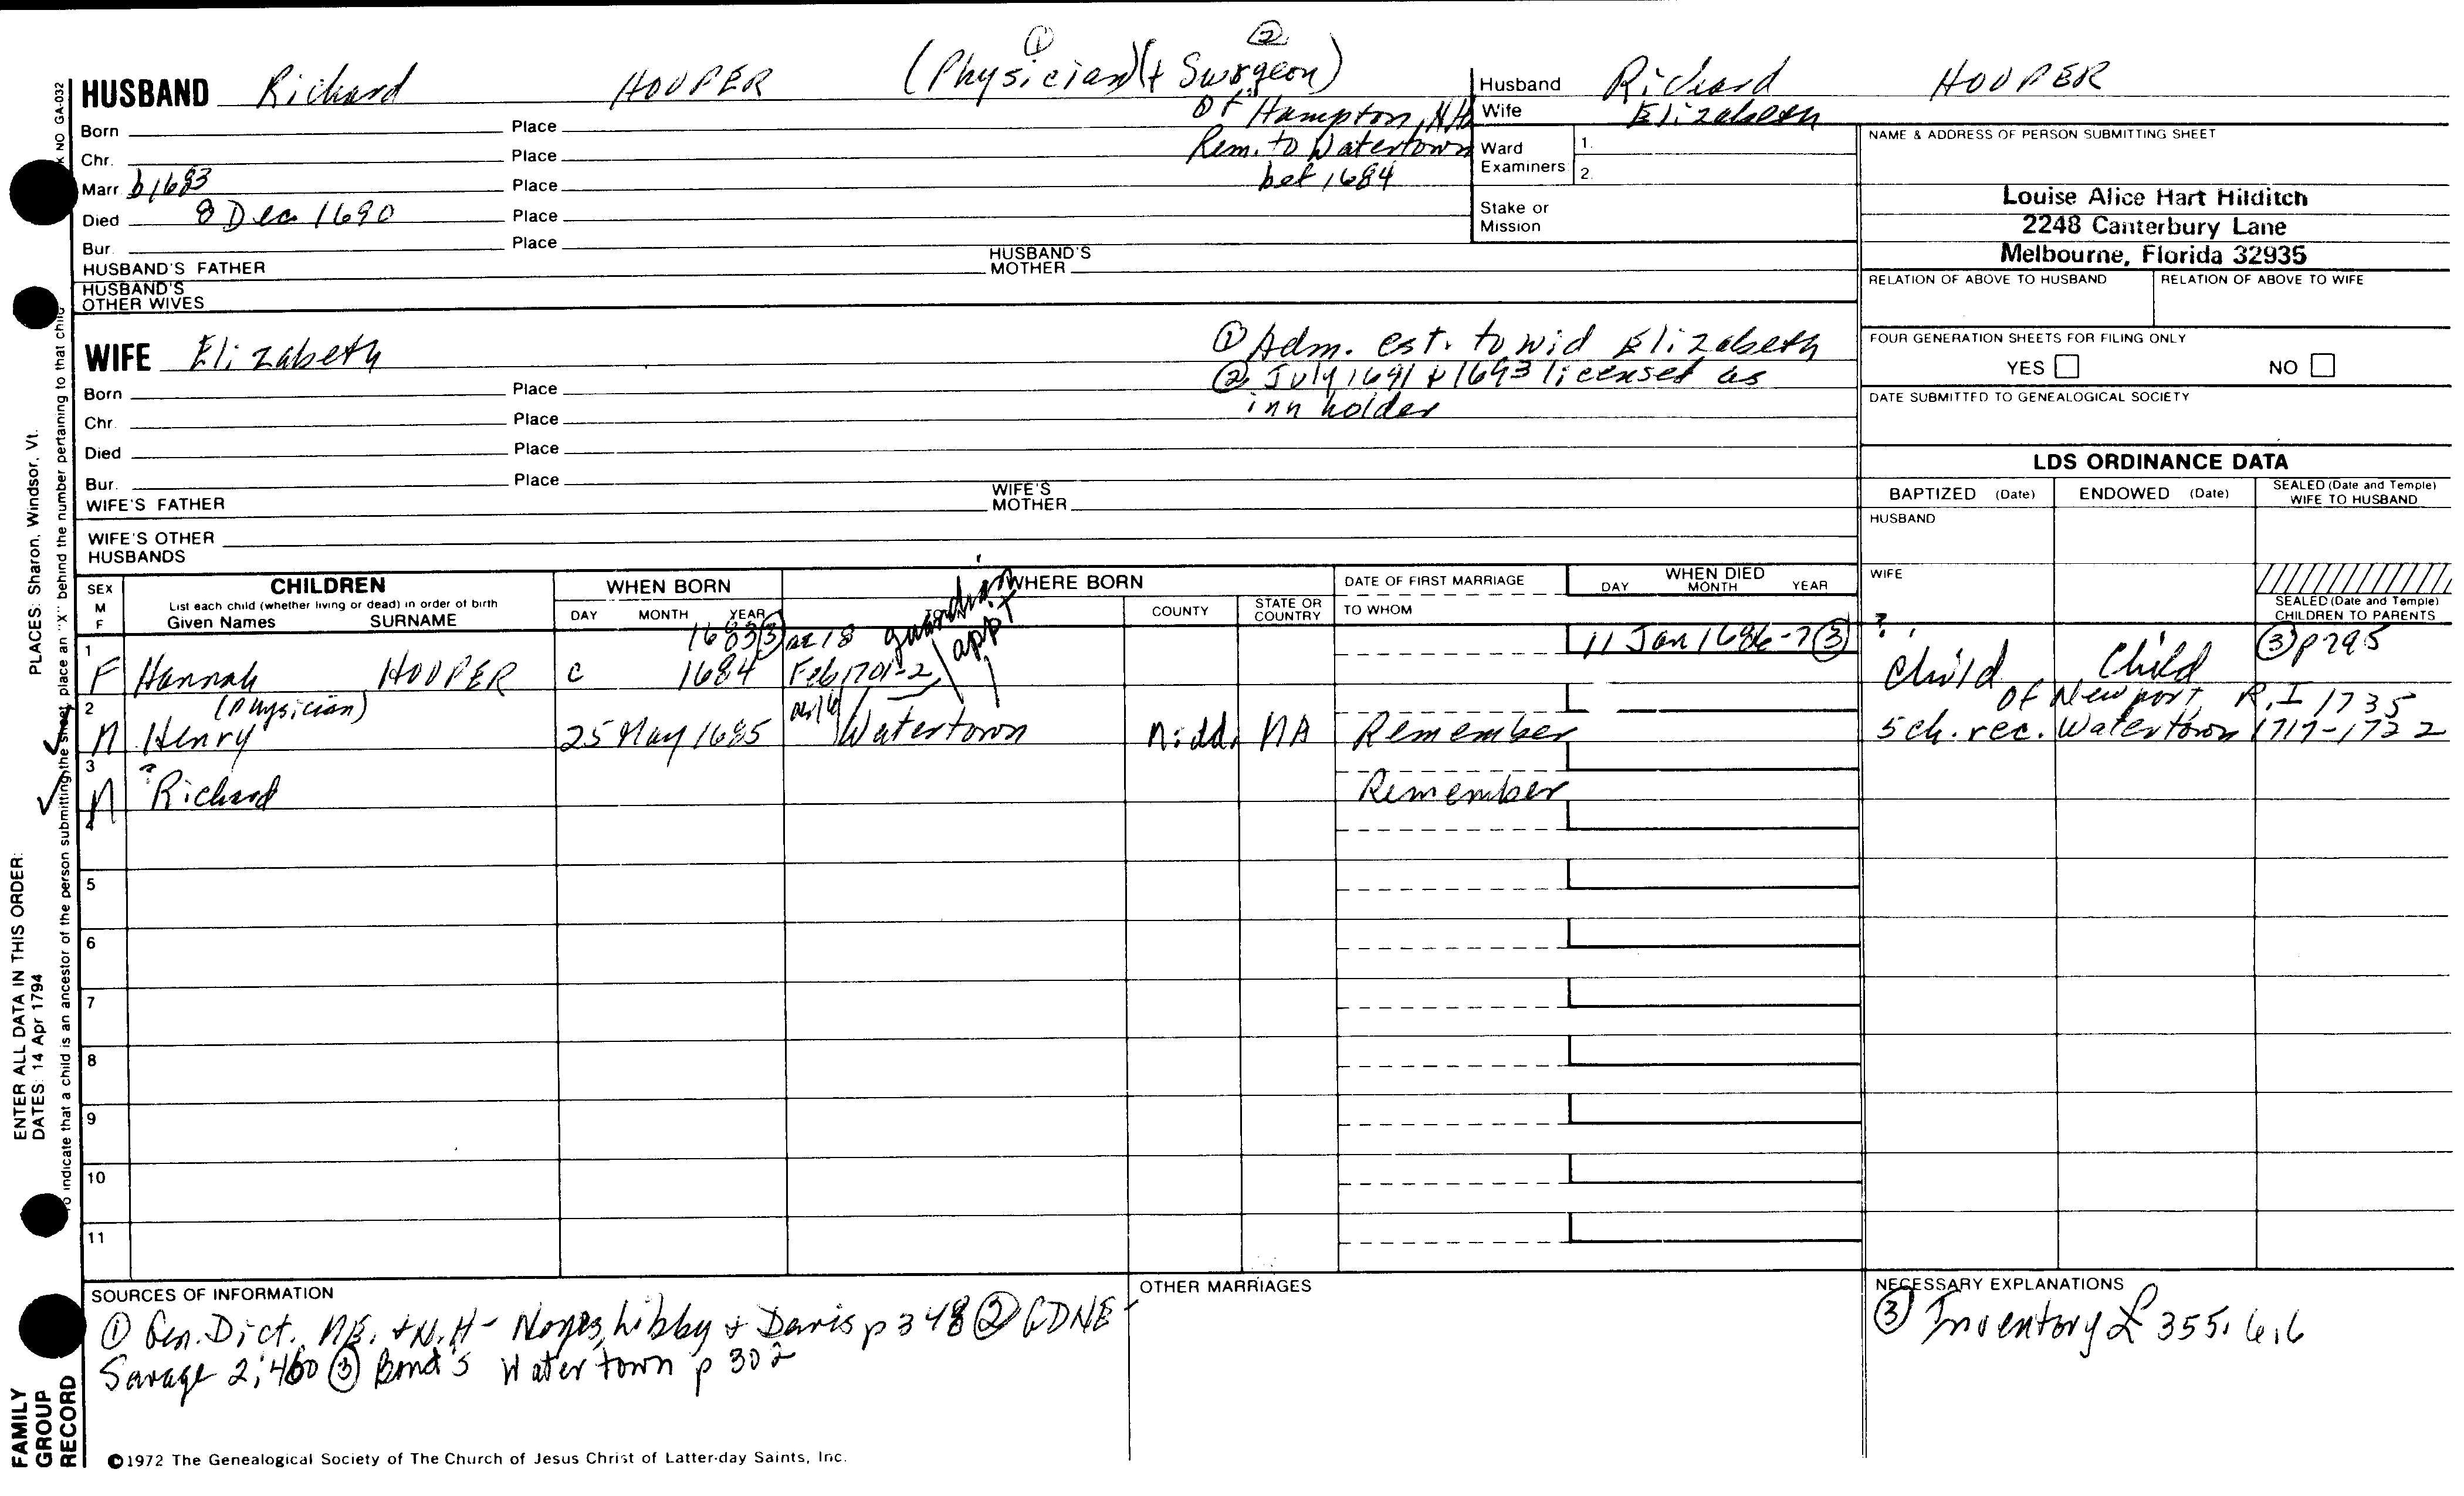 ① ②
HUSBAND Richard HOOPER (Physician)(+ Surgeon)
of Hampton, NH
Rem. to Watertown
bef 1684
Born Place
Chr. Place
Marr. b1683 Place
Died 8 Dec 1690 Place
Bur. Place
HUSBAND'S FATHER HUSBAND'S MOTHER
HUSBAND'S OTHER WIVES
Husband Richard HOOPER
Wife Elizabeth
Ward Examiners 1. 2.
Stake or Mission
NAME & ADDRESS OF PERSON SUBMITTING SHEET
Louise Alice Hart Hilditch
2248 Canterbury Lane
Melbourne, Florida 32935
RELATION OF ABOVE TO HUSBAND RELATION OF ABOVE TO WIFE
FOUR GENERATION SHEETS FOR FILING ONLY
YES NO
DATE SUBMITTED TO GENEALOGICAL SOCIETY
WIFE Elizabeth
① Adm. est. to wid Elizabeth
② July 1691 + 1693 licensed as
inn holder
Born Place
Chr. Place
Died Place
Bur. Place
WIFE'S FATHER WIFE'S MOTHER
WIFE'S OTHER HUSBANDS
LDS ORDINANCE DATA
BAPTIZED (Date) ENDOWED (Date) SEALED (Date and Temple) WIFE TO HUSBAND
HUSBAND
WIFE
SEALED (Date and Temple) CHILDREN TO PARENTS
SEX M F
CHILDREN
List each child (whether living or dead) in order of birth
Given Names SURNAME
WHEN BORN
DAY MONTH YEAR
WHERE BORN
TOWN COUNTY STATE OR COUNTRY
DATE OF FIRST MARRIAGE
TO WHOM
WHEN DIED
DAY MONTH YEAR
guardian
appt
1683③ ae 18 11 Jan 1686-7③ ? ③p795
1 F Hannah HOOPER c 1684 Feb 1701-2 Child Child
(physician) ae 16 of Newport, R.I 1735
2 M Henry 25 May 1685 Watertown Midd. MA Remember Sch. rec. Watertown 1717-1722
3 M ? Richard Remember
4
5
6
7
8
9
10
11
SOURCES OF INFORMATION
① Gen. Dict. ME. + N.H - Noyes, Libby + Davis p 348 ② GDNE -
Savage 2:460 ③ Bond's Watertown p 302
OTHER MARRIAGES
NECESSARY EXPLANATIONS
③ Inventory £ 355.6.6
©1972 The Genealogical Society of The Church of Jesus Christ of Latter-day Saints, Inc.
FAMILY
GROUP
RECORD
ENTER ALL DATA IN THIS ORDER:
DATES: 14 Apr 1794
PLACES: Sharon, Windsor, Vt.
To indicate that a child is an ancestor of the person submitting the sheet, place an "X" behind the number pertaining to that child
NO GA-032